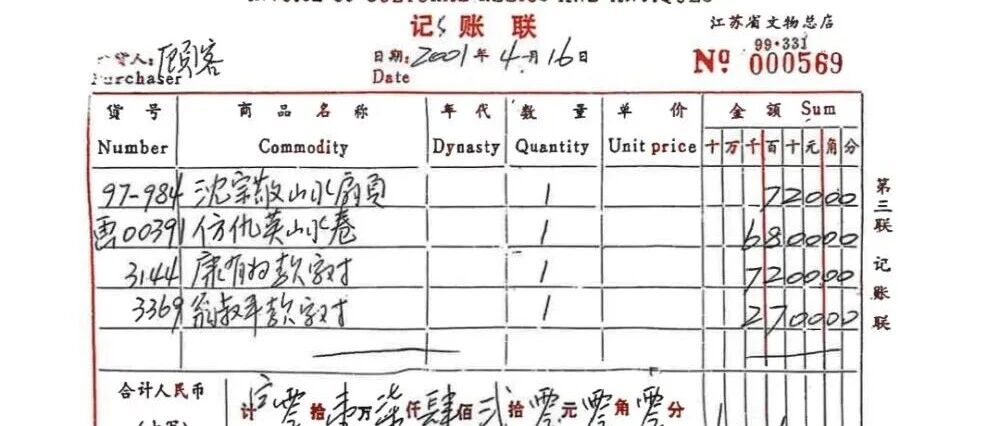 INVOICE OF CULTURAL RELICS AND ANTIQUES
记账联
江苏省文物总店
货人: 顾客
Purchaser
日期: 2001年4月16日
Date
99·331
Nº 000569
货号 商品名称 年代 数量 单价 金额 Sum
Number Commodity Dynasty Quantity Unit price 十万千百十元角分
97-984 沈宗敬山水扇頁 1 72000
画00391 仿仇英山水卷 1 680000
3144 康有为款字对 1 720000
3369 翁叔平款字对 1 270000
第三联 记账联
合计人民币
计 零拾壹万柒仟肆佰贰拾零元零角零分